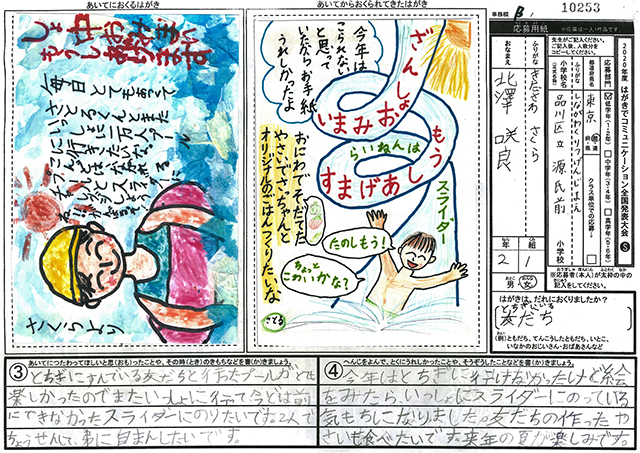 あいてにおくるはがき
しょ中おみまい
もうしあげます
毎日とても暑って
さとるくんとまた
いっしょに
さくらより
あいてからおくられてきたはがき
ざんしょ
おみまい
もうし
あげます
今年は
こられないと
思って
いたからお手紙
うれしかったよ
らいねんは
スライダー
おにわでそだてた
やさいでさくちゃんと
オリジナルのごはんつくりたいな
たのしもう!
ちょっと
こわいかな?
さとる
事務局
10253
応募用紙
2020年度 はがきでコミュニケーション全国発表大会
先生がご記入ください。
ご記入後、人数分を
コピーしてください。
応募部門
低学年(1・2年)
中学年(3・4年)
高学年(5・6年)
都道府県名
東京
小学校名
しながわくりつげんじまえ
品川区立 源氏前
小学校
クラス単位での応募
ふりがな
きたざわ さくら
おなまえ
北澤 咲良
2年
1組
男・女
※応募者(本人)が太枠の中の
記入をしてください。
はがきは、だれにおくりましたか?
とちぎにいる
友だち
(例)ともだち、てんこうしたともだち、いとこ、
いなかのおじいさん・おばあさんなど
③
あいてにつたわってほしいと思(おも)ったことや、その時(とき)のきもちなどを書(か)きましょう。
とちぎにすんでいる友だちと行ったプールがとても
楽しかったのでまたいっしょに行って今どは前
にできなかったスライダーにのりたいです。2人で
ちょうせんして、弟に自まんしたいです。
④
へんじをよんで、とくにうれしかったことや、そうぞうしたことなどを書(か)きましょう。
今年はとちぎに行けなかったけど絵
をみたら、いっしょにスライダーにのっている
気もちになりました。友だちの作ったや
さいも食べたいです。来年の夏が楽しみです。